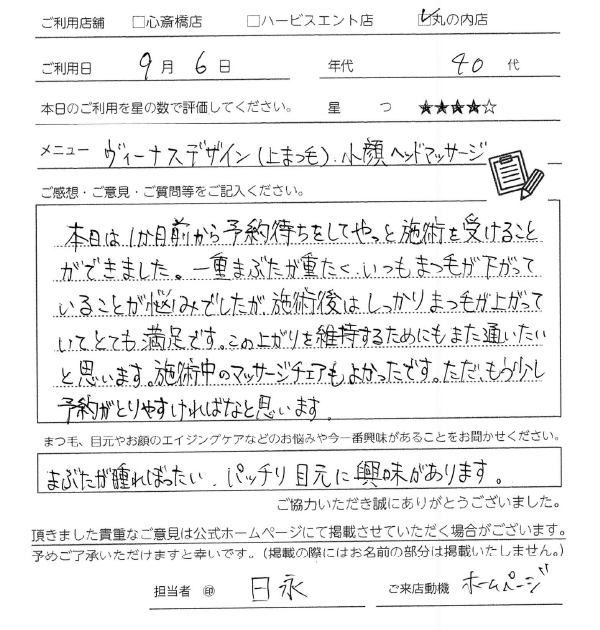 ご利用店舗 □心斎橋店 □ハービスエント店 ☑丸の内店
ご利用日 9月6日 年代 40代
本日のご利用を星の数で評価してください。 星 つ ★★★★☆
メニュー ヴィーナスデザイン(上まつ毛)・小顔ヘッドマッサージ
ご感想・ご意見・ご質問等をご記入ください。
本日は、1か月前から予約待ちをしてやっと施術を受けること
ができました。一重まぶたが重たく、いつもまつ毛が下がって
いることが悩みでしたが、施術後はしっかりまつ毛が上がって
いてとても満足です。この上がりを維持するためにもまた通いたい
と思います。施術中のマッサージチェアもよかったです。ただ、もう少し
予約がとりやすければなと思います。
まつ毛、目元やお顔のエイジングケアなどのお悩みや今一番興味があることをお聞かせください。
まぶたが腫れぼったい、パッチリ目元に興味があります。
ご協力いただき誠にありがとうございました。
頂きました貴重なご意見は公式ホームページにて掲載させていただく場合がございます。
予めご了承いただけますと幸いです。(掲載の際にはお名前の部分は掲載いたしません。)
担当者 ㊞ 日永 ご来店動機 ホームページ